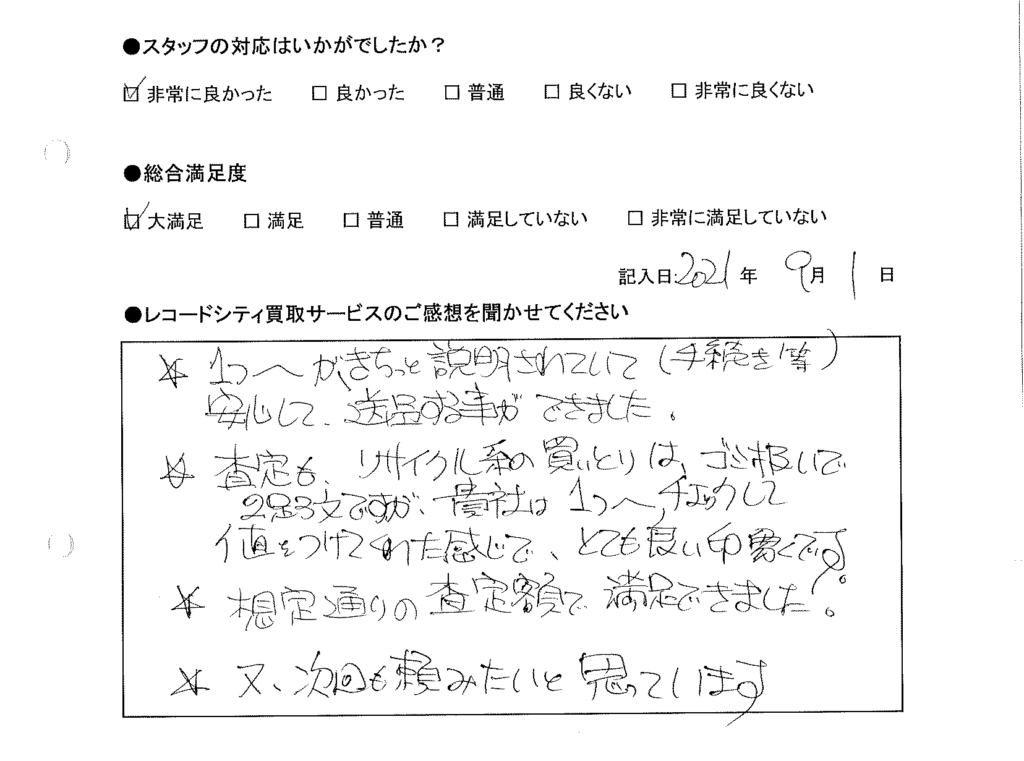 ●スタッフの対応はいかがでしたか？
☑ 非常に良かった □ 良かった □ 普通 □ 良くない □ 非常に良くない
●総合満足度
☑ 大満足 □ 満足 □ 普通 □ 満足していない □ 非常に満足していない
記入日:2021年 9月 1日
●レコードシティ買取サービスのご感想を聞かせてください
☆ 1つ〜が、きちっと説明されていて(手続き等)
安心して、送品する事ができました。
☆ 査定も、リサイクル系の買いとりは、ゴミ扱いで
2足3文ですが、貴社は1つ〜、チェックして
値をつけてくれた感じで、とても良い印象です。
☆ 想定通りの査定額で満足できました!。
☆ 又、次回も頼みたいと思っています